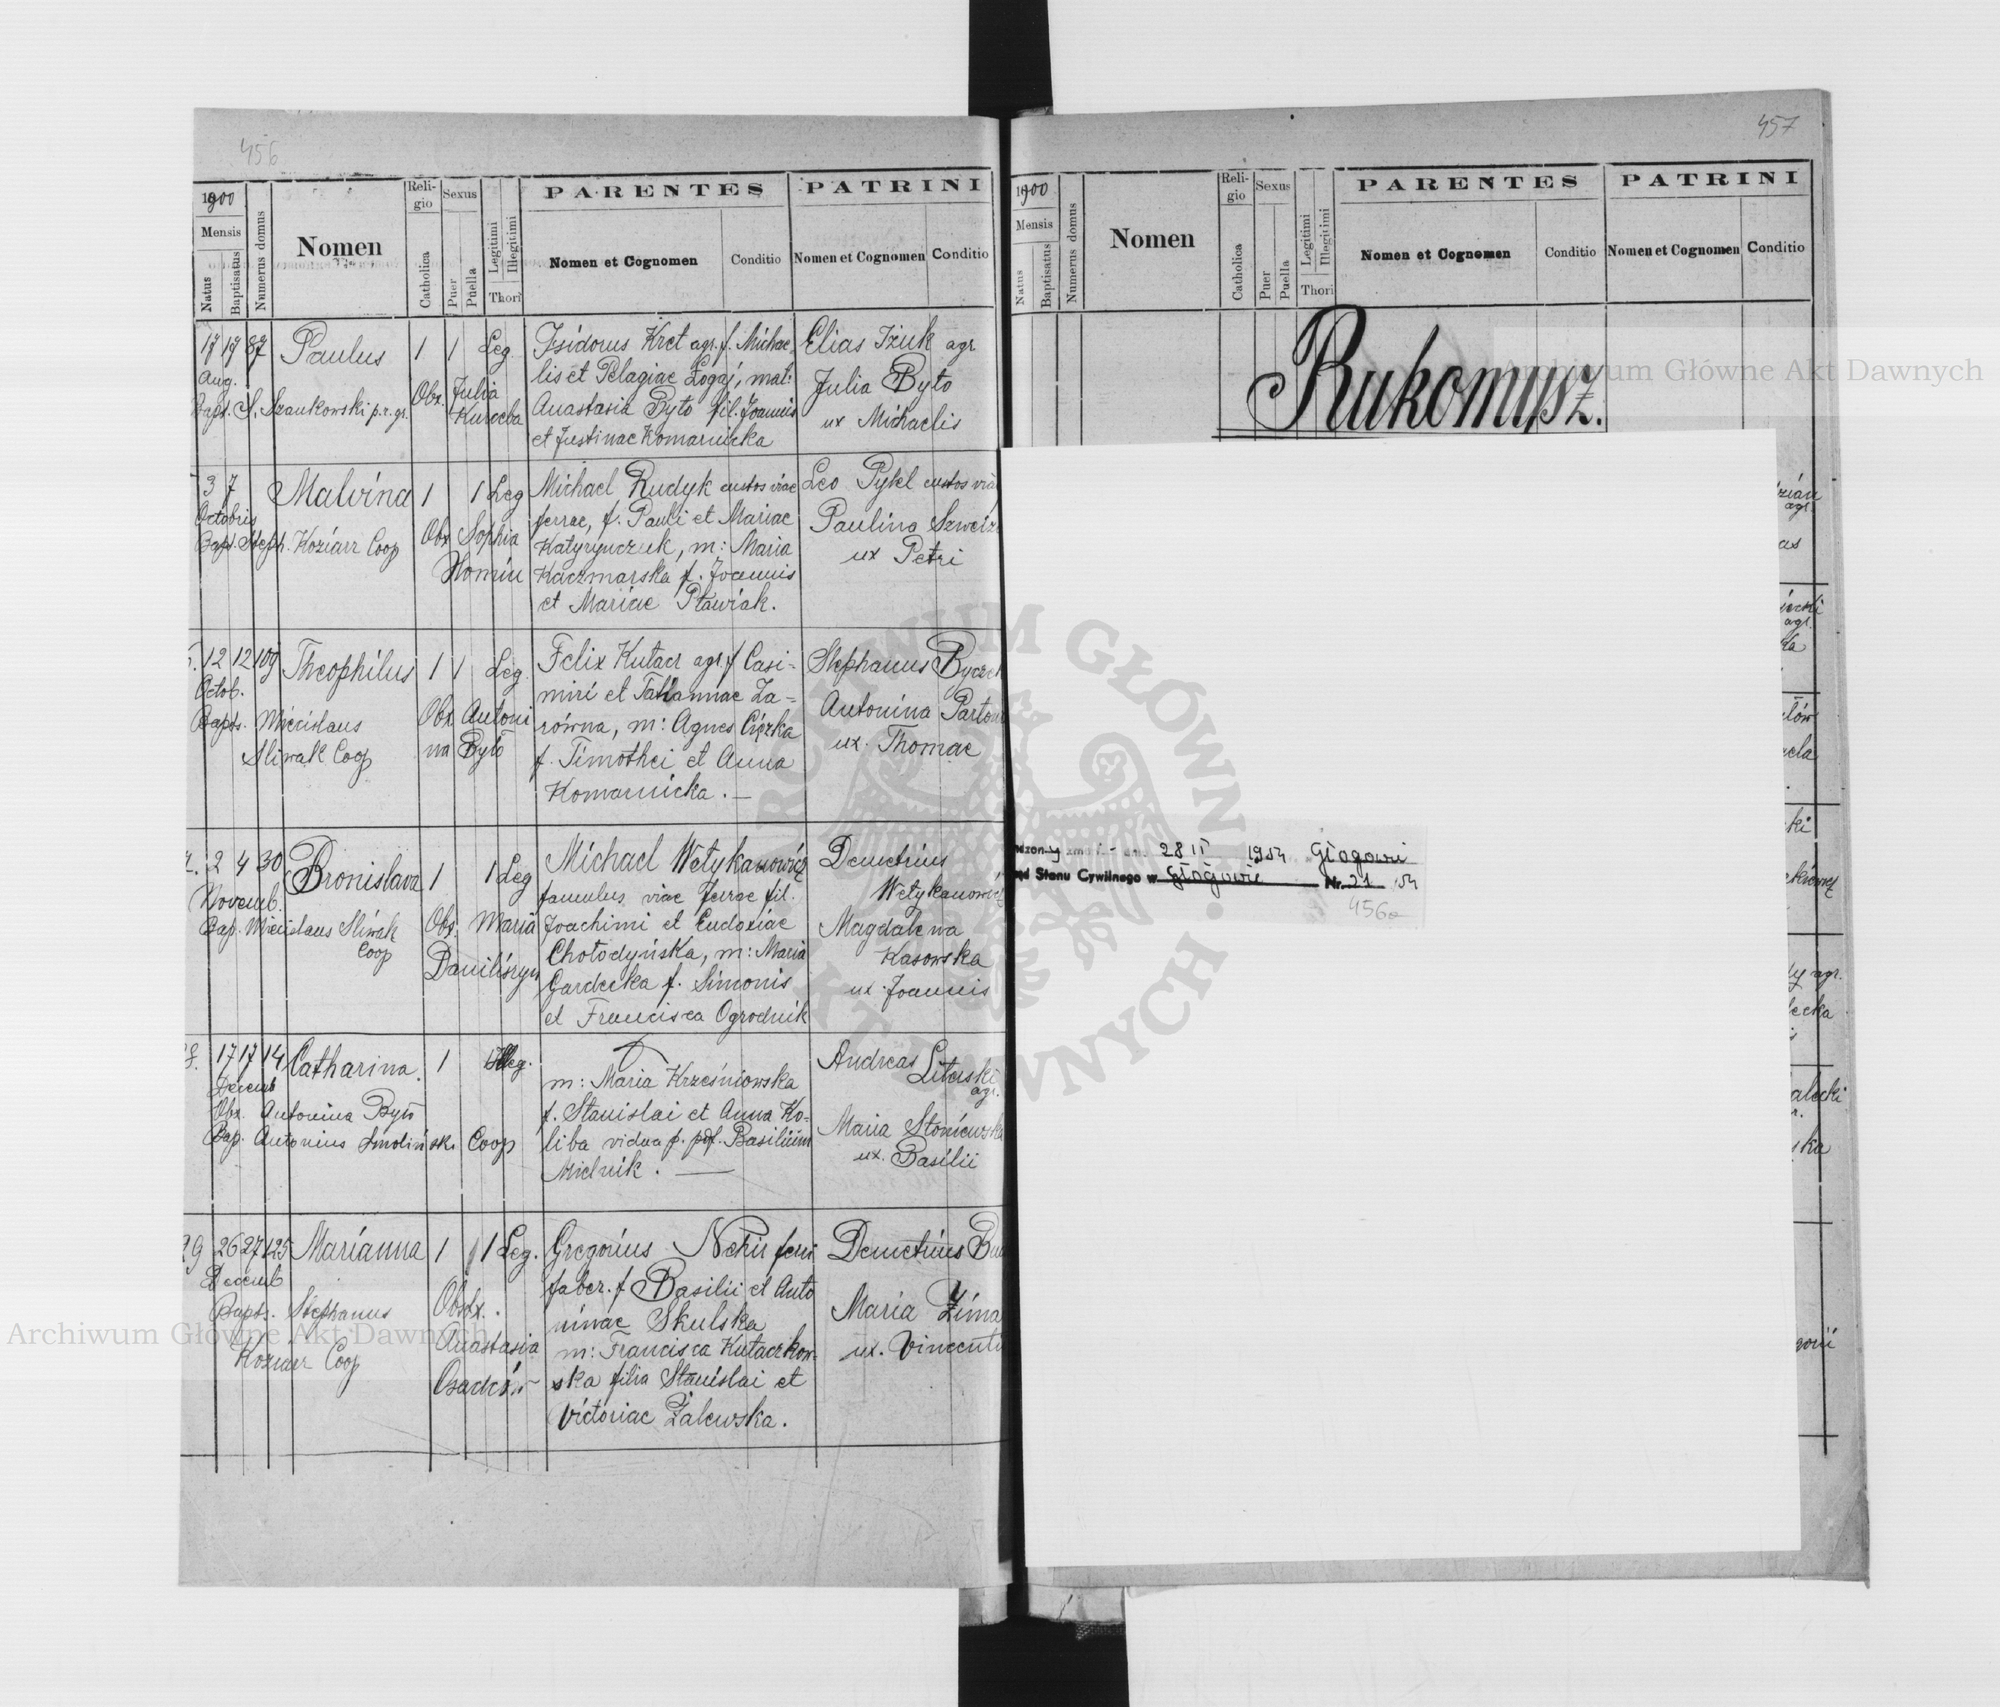 456
1900
Mensis
Natus
Baptisatus
Numerus domus
Nomen
Reli-
gio
Catholica
Sexus
Puer
Puella
Legitimi
Illegitimi
Thori
PARENTES
Nomen et Cognomen
Conditio
PATRINI
Nomen et Cognomen
Conditio
17 19 87 Paulus 1 1 Leg.
Aug.
Bapt. S. Szankowski p. r. gr.
Obx. Julia
Isidorus Kret agr. f. Michae-
lis et Pelagiae Łogaj, mat:
Anastasia Byto fil. Joannis
et Justinae Komarnicka
Elias Iżuk agr
Julia Byto
ux Michaelis
3 7 Malvina 1 1 Leg
Octobris
Bapt. Steph. Koziarr Coop
Obx Sophia
Homiu
Michael Rudyk custos viae
ferrae, f. Pauli et Mariae
Katyrynczuk, m: Maria
Kaczmarska f. Joannis
et Mariae Pławiak.
Leo Pykel custos viae
Paulina
ux Petri
12 12 109 Theophilus 1 1 Leg.
Octob.
Bapts. Miecislaus
Sliwak Coop
Obx. Antoni
na Byto
Felix Kutacr agr f Casi-
miri et Tatiannae Za-
równa, m: Agnes Ciężka
f. Timothei et Anna
Komarnicka. —
Stephanus
Antonina
ux. Thomae
2 4 30 Bronislava 1 1 Leg
Novemb.
Bap. Miecislaus Sliwak
Coop
Obx. Maria
Daniliszyn
Michael Wetykanowicz
famulus viae ferrae fil.
Joachimi et Eudoxiae
Chołodyńska, m: Maria
Gardecka f. Simonis
et Francisca Ogrodnik
Demetrius
Wetykanowicz
Magdalena
Kasowska
ux. Joannis
17 17 14 Catharina 1 Illeg.
Decemb
Obx. Antonina Byto
Bap. Antonius Smolińsk. Coop
m: Maria Krześniowska
f. Stanislai et Anna Ko-
liba vidua p. def. Basilium
Mielnik. —
Andreas
Literski
agr.
Maria Stoniewska
ux. Basilii
29 26 27 125 Marianna 1 1 Leg.
Decemb
Bapts. Stephanus
Koziarr Coop
Obstx.
Anastasia
Gregorius Nehir ferri
faber. f Basilii et Anto
ninae Skulska
m: Francisca Kutaczkow-
ska filia Stanislai et
Victoriae Zalewska.
Demetrius
Maria Zima
ux. Vincenti
457
1900
Mensis
Natus
Baptisatus
Numerus domus
Nomen
Reli-
gio
Catholica
Sexus
Puer
Puella
Legitimi
Illegitimi
Thori
PARENTES
Nomen et Cognomen
Conditio
PATRINI
Nomen et Cognomen
Conditio
Rukomysz.
28 II 1954 Głogowie
Stanu Cywilnego w Głogowie Nr. 21 54
456a
Archiwum Główne Akt Dawnych
Archiwum Główne Akt Dawnych
ARCHIWUM GŁÓWNE AKT DAWNYCH